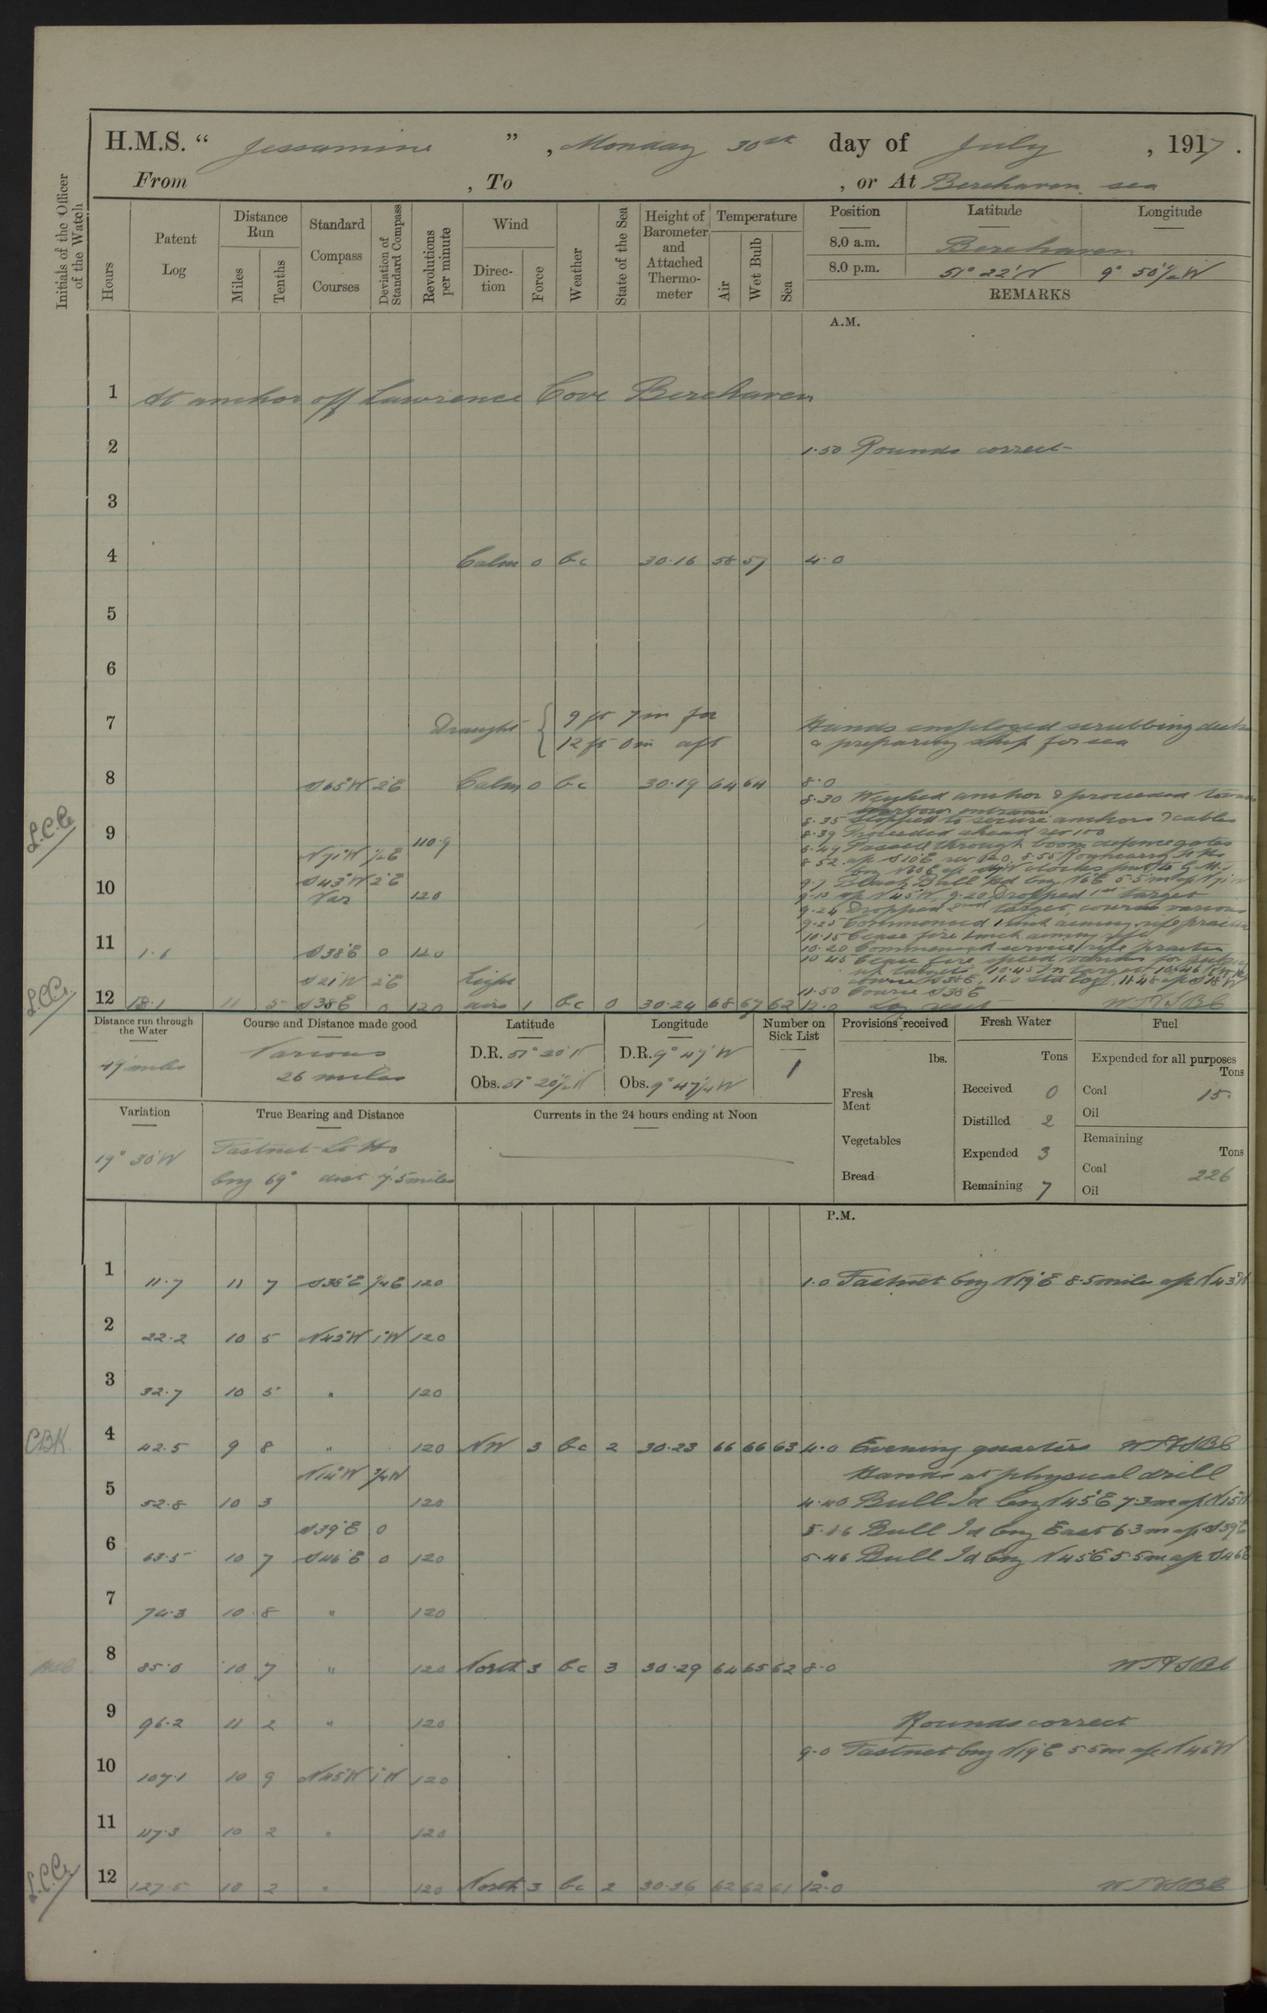 H.M.S. " Jessamine ", Monday 30th day of July, 1917.
From , To , or At Berehaven sea
Initials of the Officer of the Watch
Hours
Patent Log
Distance Run
Miles
Tenths
Standard Compass Courses
Deviation of Standard Compass
Revolutions per minute
Wind
Direction
Force
Weather
State of the Sea
Height of Barometer and Attached Thermometer
Temperature
Air
Wet Bulb
Sea
Position Latitude Longitude
8.0 a.m. Berehaven
8.0 p.m. 51° 22' N 9° 50½' W
REMARKS
A.M.
1 At anchor off Lawrence Cove Berehaven
2 1.50 Rounds correct
3
4 Calm 0 bc 30.16 58 57 4.0
5
6
7 Draught { 9 ft 7 in for Hands employed scrubbing decks
12 ft 0 in aft & preparing ship for sea
8 S65°W 2°E Calm 0 bc 30.19 64 64 8.0
8.30 Weighed anchor & proceeded
harbour entrance
8.35 Stopped to secure anchors & cables
L.C.C.
9 110.9 8.39 Proceeded ahead rev 100
8.49 Passed through boom defence gates
N71°W ½E
10 S43°W 2°E
Var 120
9.20 Dropped 1st target
9.24 Dropped 2nd target, course various
9.25 Commenced 1 inch aiming rifle practice
10.15 Cease fire 1 inch aiming rifle
11 1.6 S38°E 0 120 10.20 Commenced service rifle practice
10.45 Cease fire speed various for picking
up targets
S21°W 2°E Light
11.50 Course S38°E
L.C.C.
12 13.1 11 5 S38E 0 120 airs 1 bc 0 30.24 68 67 62 12.0
Distance run through the Water
49 miles
Course and Distance made good
Various
26 miles
Latitude
D.R. 51° 20' N
Obs. 51° 20½' N
Longitude
D.R. 9° 47' W
Obs. 9° 47¼' W
Number on Sick List
1
Provisions received
lbs.
Fresh Meat
Vegetables
Bread
Fresh Water
Tons
Received 0
Distilled 2
Expended 3
Remaining 7
Fuel
Expended for all purposes
Tons
Coal 15
Oil
Remaining
Tons
Coal 226
Oil
Variation
19° 30' W
True Bearing and Distance
Fastnet Lt Ho
brg 69° dist 7.5 miles
Currents in the 24 hours ending at Noon
P.M.
1 11.7 11 7 S38°E ¼E 120 1.0 Fastnet brg N19°E 8.5 miles a/c N43°W
2 22.2 10 5 N43°W 1°W 120
3 32.7 10 5 " 120
CBK
4 42.5 9 8 " 120 NW 3 bc 2 30.23 66 66 63 4.0 Evening quarters
N14°W ¾W Hands at physical drill
5 52.8 10 3 120 4.40 Bull Id brg N45°E 7.3 m a/c N15°W
S39°E 0 5.16 Bull Id brg East 6.3 m a/c S39°E
6 63.5 10 7 S46°E 0 120 5.46 Bull Id brg N45°E 5.5 m a/c S46°E
7 74.3 10 8 " 120
8 85.0 10 7 " 120 North 3 bc 3 30.29 64 65 62 8.0
9 96.2 11 2 " 120 Rounds correct
9.0 Fastnet brg N19°E 5.5 m a/c N45°W
10 107.1 10 9 N45°W 1°W 120
11 117.3 10 2 " 120
L.C.C.
12 127.5 10 2 " 120 North 3 bc 2 30.36 62 62 61 12.0